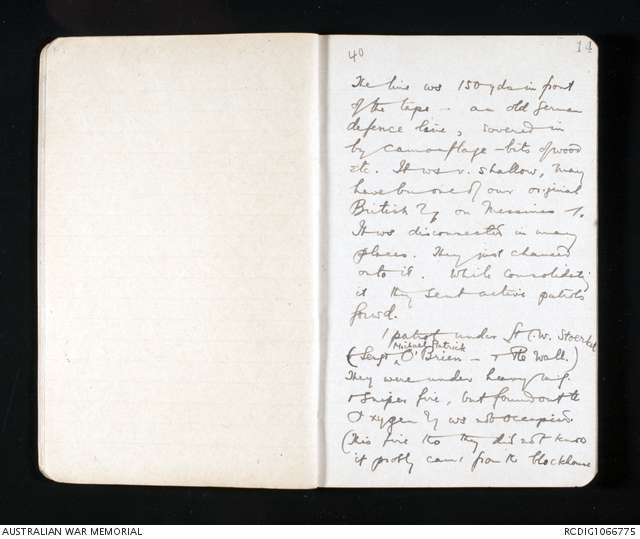 40
14
The line ws 150 yds in front
of the tape - an old German
defence line, covered in
by camouflage - bits of wood
etc. It ws v. shallow, may
have been one of our original
British on Messines
It ws disconnected in many
places. They just chanced
onto it. While consolidatg
it they sent active patrols
forwd.
1 patrol under Lt C.W. Stoerkel
Michael Patrick
(Sergt O'Brien - + Pte Wall.)
They were under heavy m.g.
+ sniper fire, but found out tt
Oxygen ws not occupied
(This fire tho they did not know
it probly came from the blockhouse
AUSTRALIAN WAR MEMORIAL
RCDIG1066775